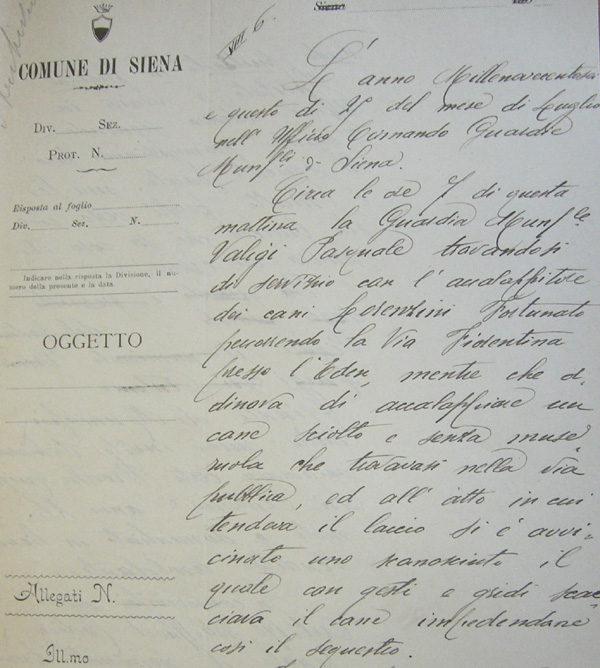 COMUNE DI SIENA
DIV. SEZ.
PROT. N.
Risposta al foglio
Div. Sez. N.
Indicare nella risposta la Divisione, il nu-
mero della presente e la data.
OGGETTO
Allegati N.
Ill.mo
Siena
VIII 6.
L'anno Millenovecento
e questo dì 25 del mese di Luglio
nell'Ufficio Comando Guardie
Munpli di Siena.
Circa le ore 7 di questa
mattina la Guardia Munple
Valigi Pasquale trovandosi
di servizio con l'accalappiatore
dei cani Lorenzini Fortunato
percorrendo la Via Fiorentina
presso l'Eden, mentre che or
dinava di accalappiare un
cane sciolto e senza muse
ruola che trovavasi nella via
pubblica, ed all'atto in cui
tendeva il laccio si è avvi-
cinato uno sconosciuto il
quale con gesti e gridi scac
ciava il cane impedendone
così il sequestro.